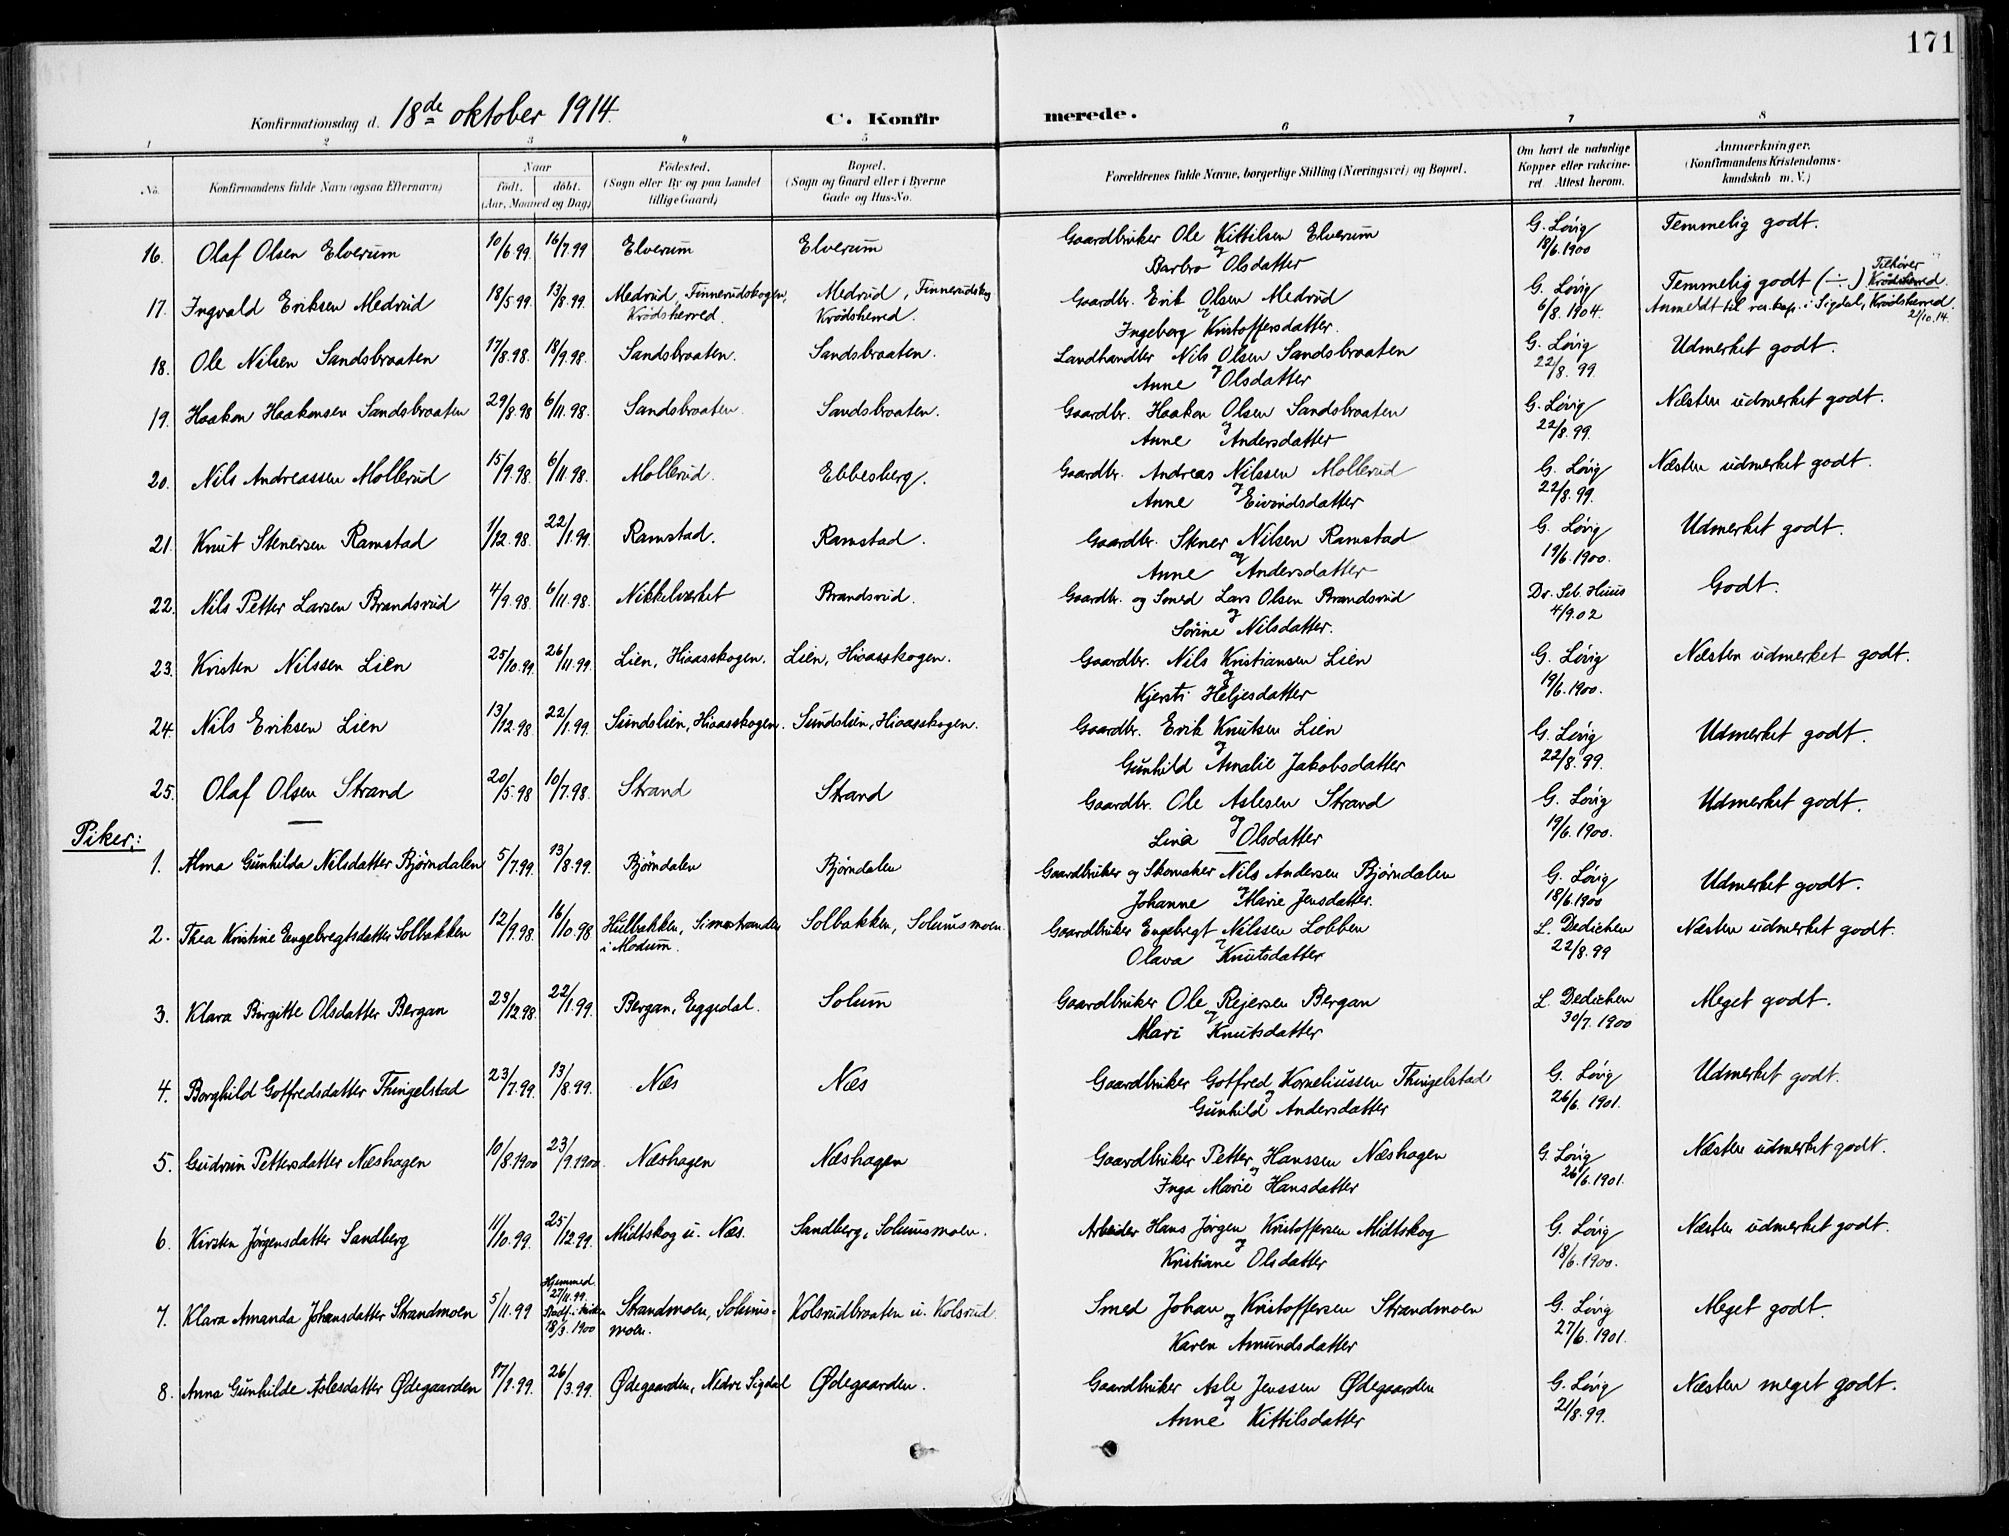 171
Konfirmationsdag d. 18de oktober 1914.
C. Konfirmerede.
1 2 3 4 5 6 7 8
No. Konfirmandens fulde Navn (ogsaa Efternavn) Naar født. døbt. (Aar, Maaned og Dag) Fødested. (Sogn eller By og paa Landet tillige Gaard) Bopæl. (Sogn og Gaard eller i Byerne Gade og Hus-No. Forældrenes fulde Navne, borgerlige Stilling (Næringsvei) og Bopæl. Om havt de naturlige Kopper eller vakcineret Attest herom. Anmærkninger. (Konfirmandens Kristendomskundskab m. V.)
16. Olaf Olsen Elverum 10/6.99. 16/7.99 Elverum Elverum Gaardbruker Ole Kittilsen Elverum G. Løvig Temmelig godt.
og Barbro Olsdatter 18/6.1900
17. Ingvald Eriksen Medrud 18/5.99. 13/8.99. Medrud, Finnerudskogen, Medrud, Finnerudskog Gaardbr. Erik Olsen Medrud G. Løvig Temmelig godt (÷) Tilhører Krødsherred.
Krødsherred. Krødsherred. og Ingeborg Kristoffersdatter. 6/8.1904. Anmeldt til res. kap. i Sigdal, Krødsherred 2/10.14.
18. Ole Nilsen Sandsbraaten 17/8.98. 18/9.98. Sandsbraaten. Sandsbraaten. Landhandler Nils Olsen Sandsbraaten G. Løvig Udmerket godt.
Anne og Olsdatter 22/8.99.
19. Haakon Haakonsen Sandsbraaten 29/8.98 6/11.98. Sandsbraaten. Sandsbraaten. Gaardbr. Haakon Olsen Sandsbraaten G. Løvig Næsten udmerket godt.
Anne og Andersdatter 22/8.99.
20. Nils Andreassen Møllerud 15/9.98. 6/11.98. Møllerud. Ebbesberg. Gaardbr. Andreas Nilssen Møllerud G. Løvig Næsten udmerket godt.
Anne og Eivindsdatter 22/8.99.
21. Knut Stenersen Ramstad 1/12.98. 22/1.99. Ramstad. Ramstad. Gaardbr. Stener Nilsen Ramstad G. Løvig Udmerket godt.
Anne og Andersdatter 19/6.1900.
22. Nils Petter Larsen Brandsrud 4/9.98. 6/11.98. Nikkelverket Brandsrud. Gaardbr. og Smed Lars Olsen Brandsrud Dr. Seb. Huus Godt.
Sørine og Nilsdatter. 4/9.02
23. Kristen Nilssen Lien 25/10.99. 26/11.99. Lien, Hiaasskogen. Lien, Hiaasskogen. Gaardbr. Nils Kristiansen Lien G. Løvig Næsten udmerket godt.
og Kjersti Heljesdatter 19/6.1900.
24. Nils Eriksen Lien 13/12.98. 22/1.99. Sundslien, Hiaasskogen. Sundslien, Hiaasskogen. Gaardbr. Erik Knutsen Lien G. Løvig Udmerket godt.
og Gunhild Amalie Jakobsdatter 22/8.99.
25. Olaf Olsen Strand 20/5.98 10/7.98. Strand Strand Gaardbr. Ole Aslesen Strand G. Løvig Udmerket godt.
Lina og Olsdatter 19/6.1900.
Piker:
1. Alma Gunhilda Nilsdatter Bjørndalen 5/7.99. 13/8.99. Bjørndalen Bjørndalen Gaardbruker og Skomaker Nils Andersen Bjørndalen G. Løvig Udmerket godt.
Johanne og Marie Jensdatter. 18/6.1900
2. Thea Kristine Engebregtsdatter Solbakken 12/9.98. 16/10.98 Hulbakken, Simostranden Solbakken, Solumsmoen. Gaardbruker Engebregt Nilssen Lobben L. Dedichen Næsten udmerket godt.
i Modum. Olava og Knutsdatter 22/8.99
3. Klara Birgitte Olsdatter Bergan 23/12.98. 22/1.99. Bergan, Eggedal. Solum Gaardbruker Ole Reiersen Bergan L. Dedichen Meget godt.
Mari og Knutsdatter 30/7.1900
4. Borghild Gotfredsdatter Thingelstad 23/7.99. 13/8.99. Næs Næs Gaardbruker Gotfred Korneliussen Thingelstad G. Løvig Udmerket godt.
og Gunhild Andersdatter 26/6.1901.
5. Gudrun Pettersdatter Næshagen 10/8.1900 23/9.1900. Næshagen Næshagen Gaardbruker Petter Hanssen Næshagen G. Løvig Næsten udmerket godt.
og Inga Marie Hansdatter 26/6.1901.
6. Kirsten Jørgensdatter Sandberg 11/10.99. 25/12.99. Midtskog u. Næs. Sandberg, Solumsmoen. Arbeider Hans Jørgen Kristoffersen Midtskog G. Løvig Næsten udmerket godt.
og Kristiane Olsdatter 18/6.1900.
7. Klara Amanda Johansdatter Strandmoen 5/11.99 Hjemmed. 27/11.99. Stadf. i kirken 18/3.1900 Strandmoen, Solumsmoen. Kolsrudbraaten u. Kolsrud. Smed Johan Kristoffersen Strandmoen G. Løvig Meget godt.
og Karen Amundsdatter 27/6.1901.
8. Anna Gunhilde Aslesdatter Ødegaarden 17/1.99. 26/3.99. Ødegaarden, Nedre Sigdal Ødegaarden. Gaardbruker Asle Jenssen Ødegaarden G. Løvig Næsten meget godt.
og Anne Kittilsdatter 21/8.99.